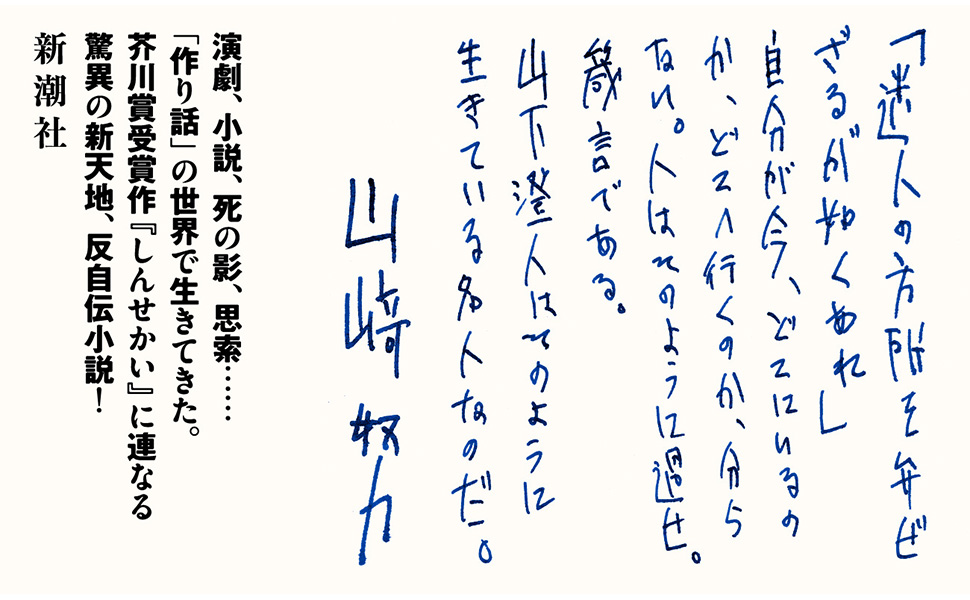 「迷人の方所を弁ぜ
ざるが如くあれ」
自分が今、どこにいるの
か、どこへ行くのか、分ら
ない。人はそのように過せ。
箴言である。
山下澄人はそのように
生きている名人なのだ。
山﨑努
演劇、小説、死の影、思索……
「作り話」の世界で生きてきた。
芥川賞受賞作『しんせかい』に連なる
驚異の新天地、反自伝小説！
新潮社